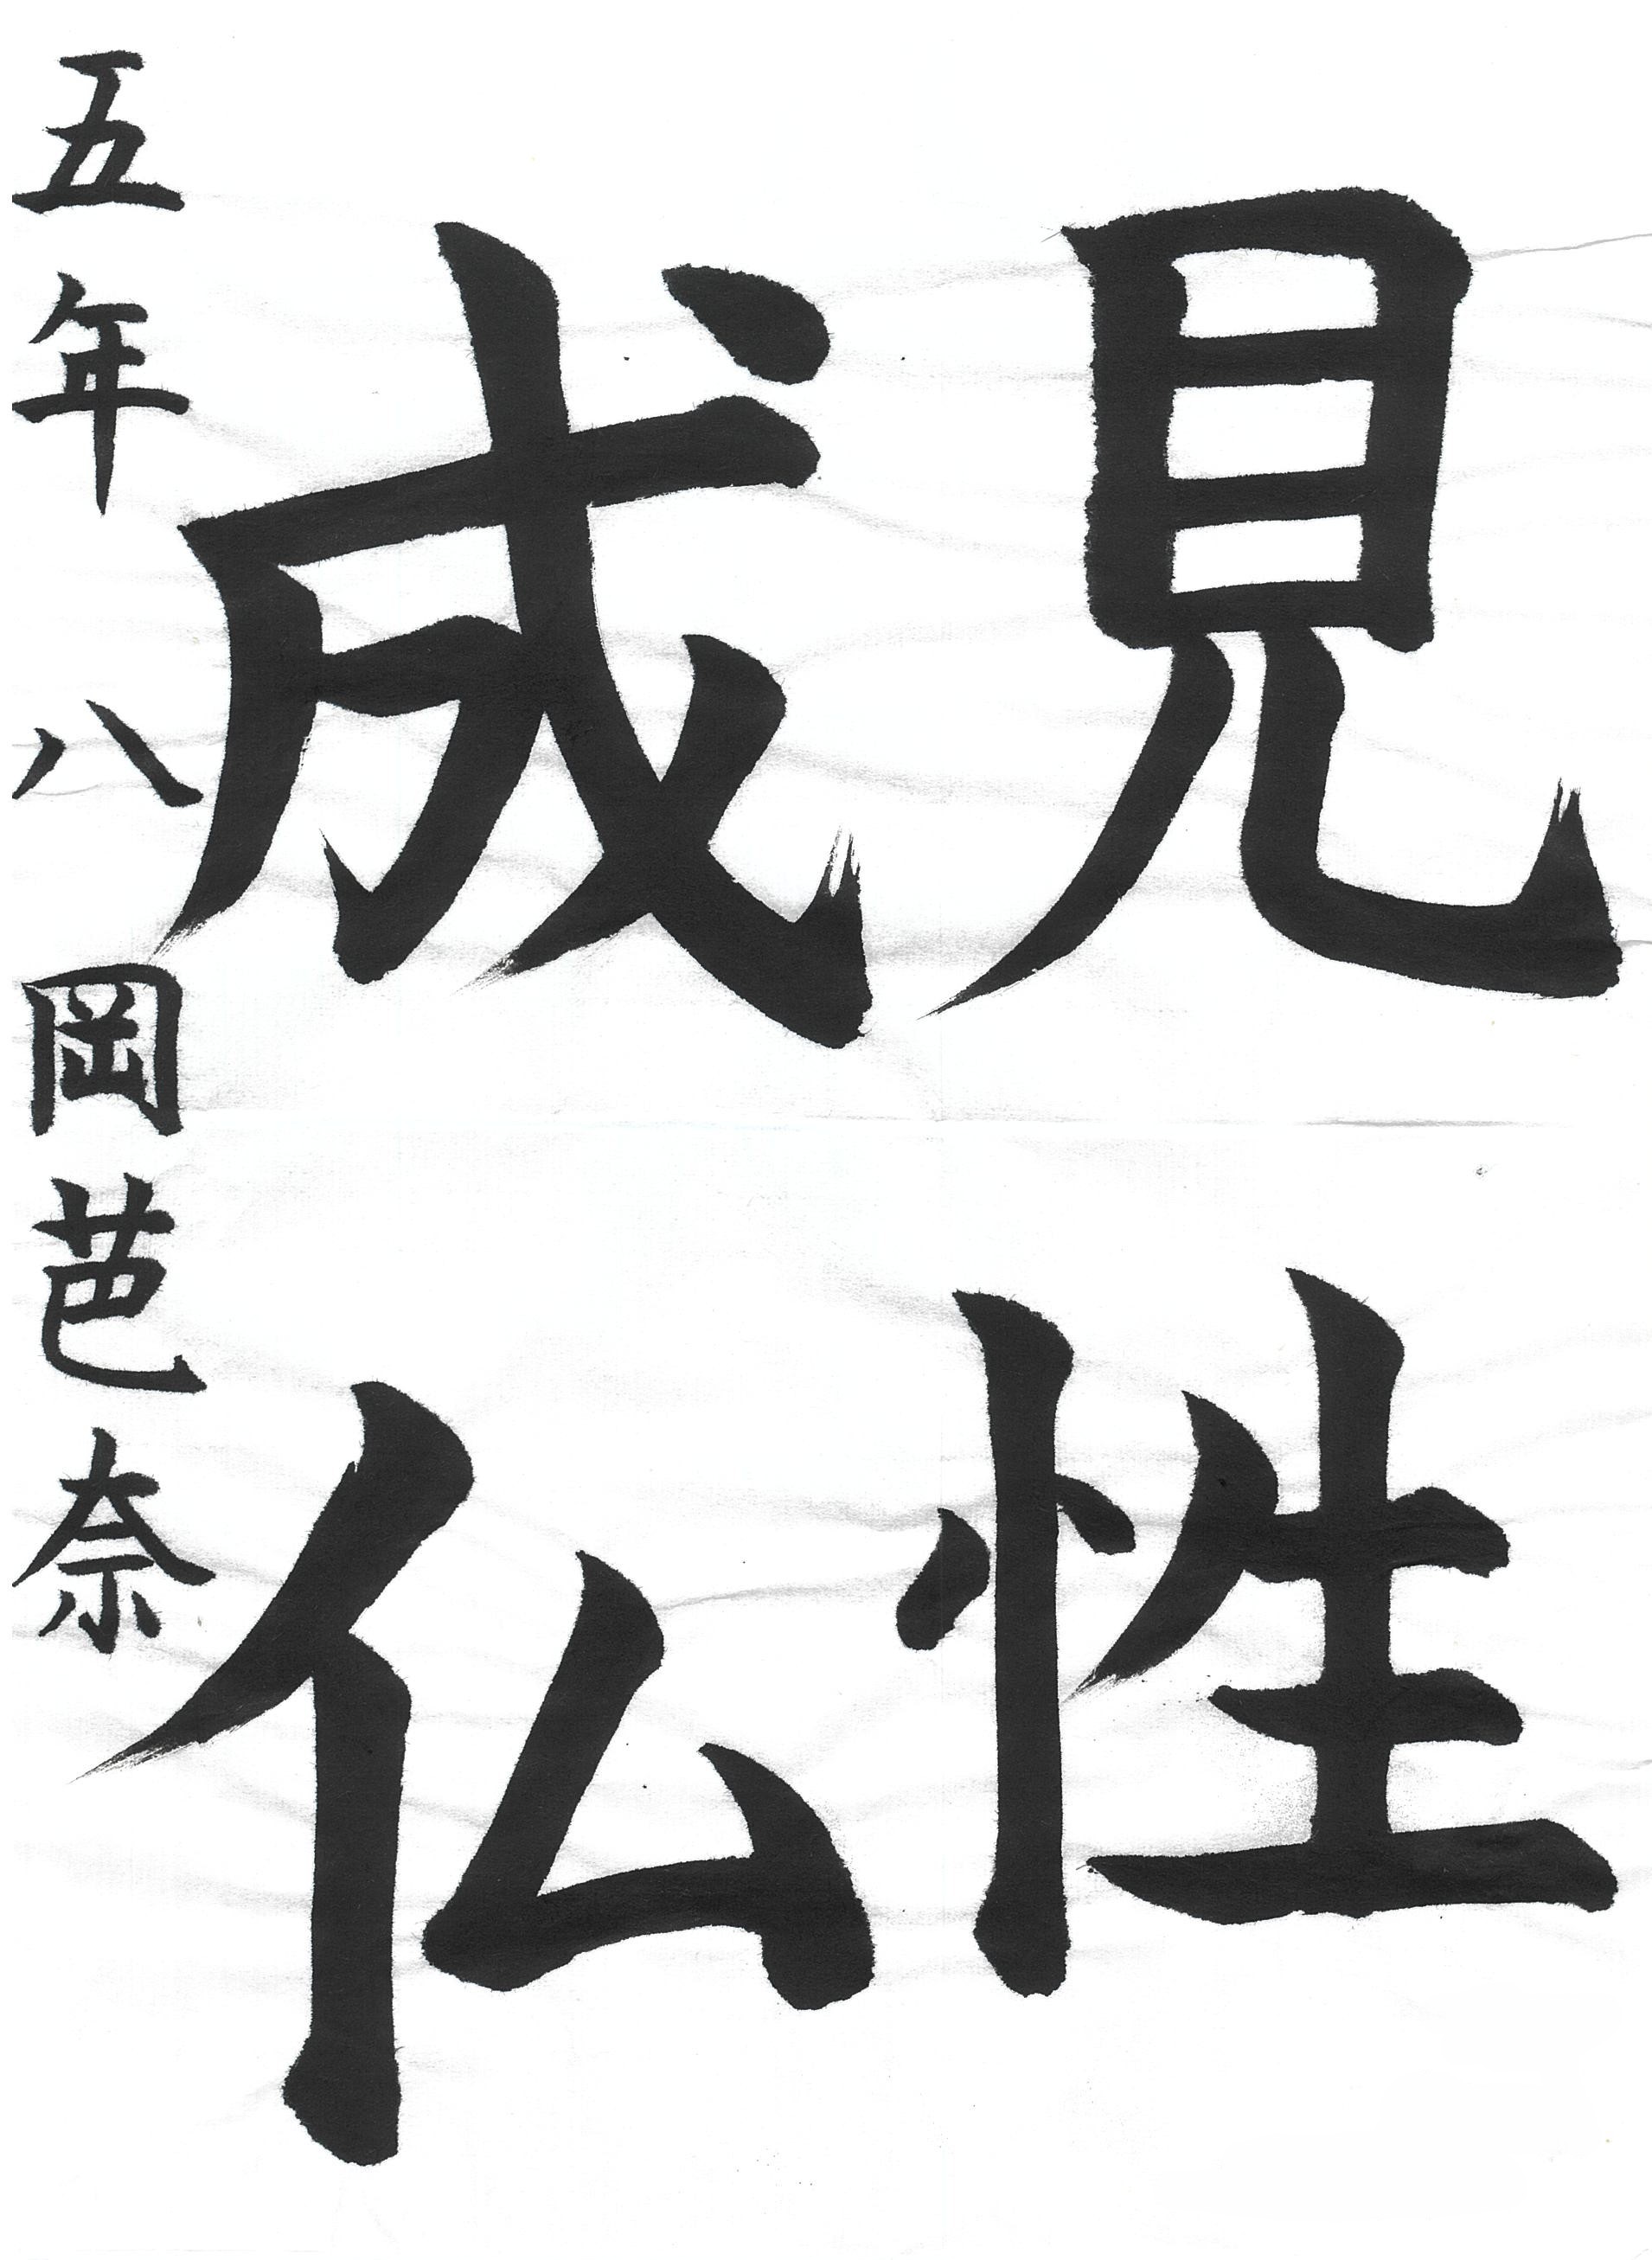 見性
成仏
五年 八岡芭奈